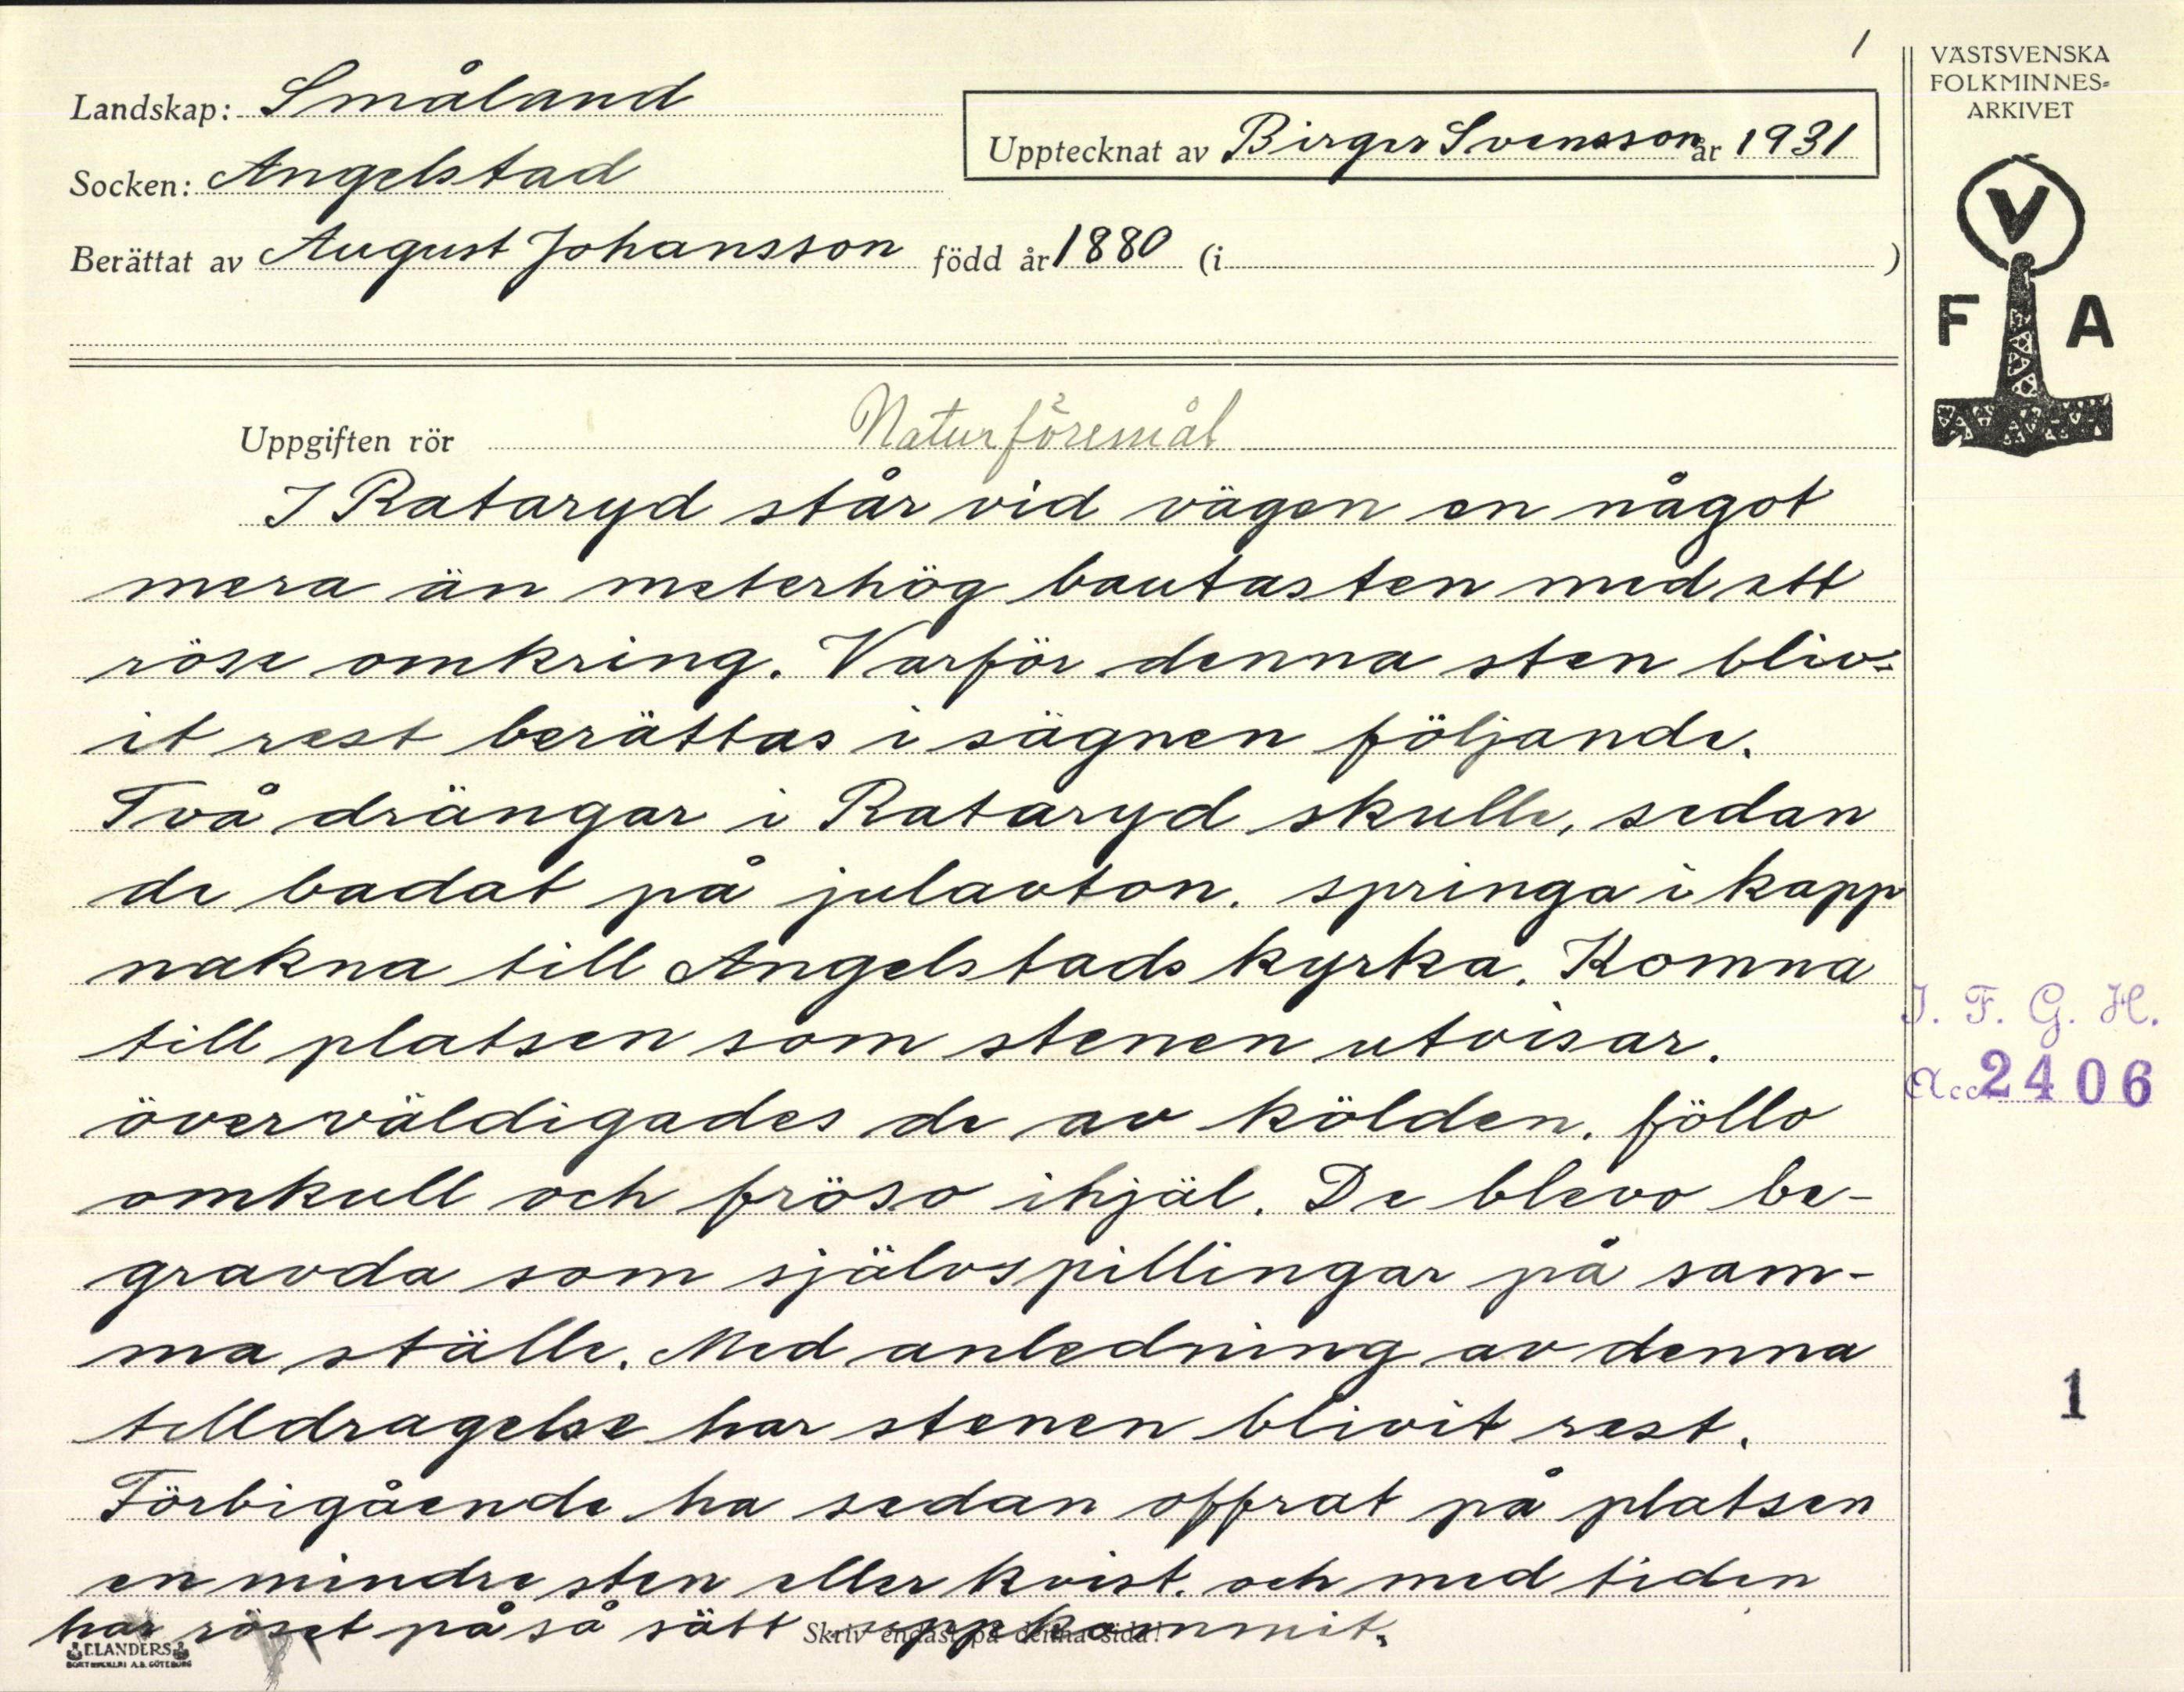 1
VÄSTSVENSKA
FOLKMINNES-
ARKIVET
Landskap: Småland
Upptecknat av Birger Svensson år 1931
Socken: Angelstad
Berättat av August Johansson född år 1880 (i )
V
F A
Uppgiften rör Naturföremål
I Rataryd står vid vägen en något
mera än meterhög bautasten med ett
röse omkring. Varför denna sten bliv-
it rest berättas i sägnen följande.
Två drängar i Rataryd skulle, sedan
de badat på julavton. springa i kapp
nakna till Angelstads kyrka. Komna
till platsen som stenen utvisar.
överväldigades de av kölden. föllo
omkull och fröso ihjäl. De blevo be-
gravda som självspillingar på sam-
ma ställe. Med anledning av denna
tilldragelse har stenen blivit rest.
Förbigående ha sedan offrat på platsen
en mindre sten eller kvist. och med tiden
har röset på så sätt uppkommit.
Skriv endast på denna sida!
I. F. G. H.
Acc. 2406
1
ELANDERS
BOKTRYCKERI A.B. GÖTEBORG